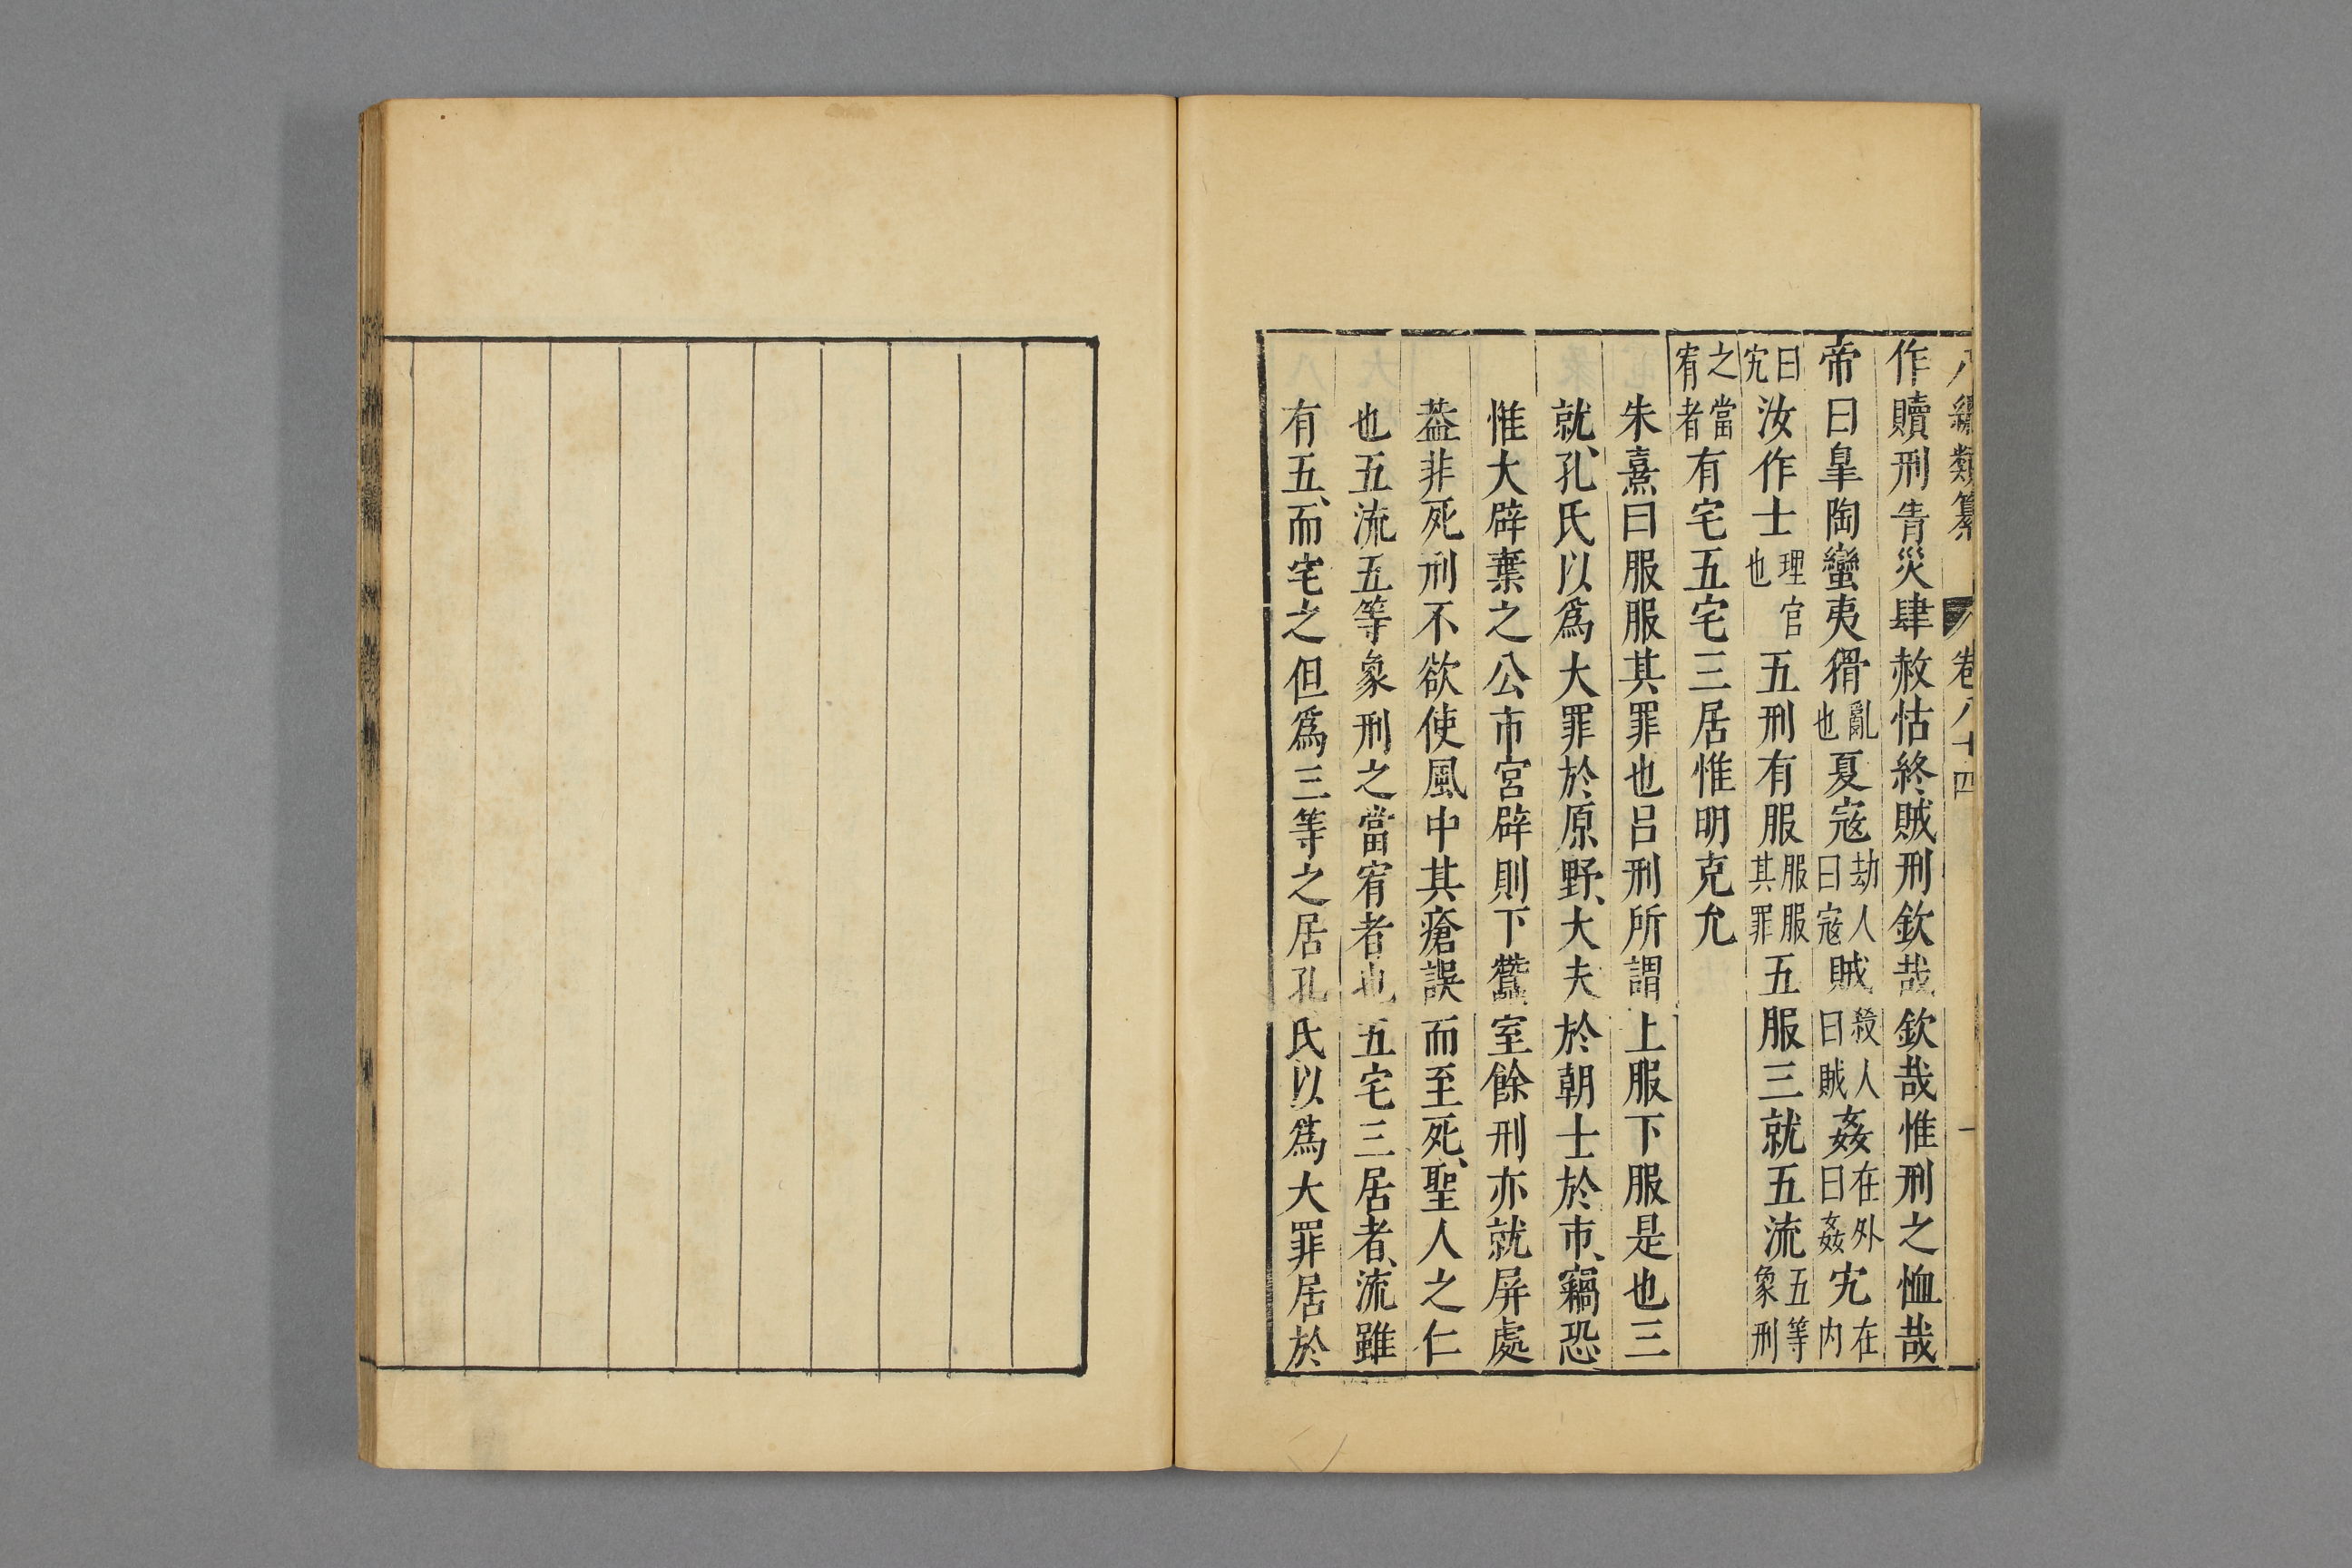 八編類纂 卷八十四 一
作贖刑眚災肆赦怙終賊刑欽哉欽哉惟刑之恤哉
帝曰皐陶蠻夷猾亂也夏寇劫人曰寇賊殺人曰賊姦在外曰姦宄在内
曰宄汝作士理官也五刑有服服服其罪五服三就五流五等象刑
之當宥者有宅五宅三居惟明克允
朱熹曰服服其罪也呂刑所謂上服下服是也三
就、孔氏以爲大罪於原野、大夫於朝士於市、竊恐
惟大辟棄之公市宮辟則下蠶室餘刑亦就屏處
葢非死刑不欲使風中其瘡誤而至死、聖人之仁
也五流五等象刑之當宥者也五宅三居者、流雖
有五、而宅之但爲三等之居孔氏以爲大罪居於